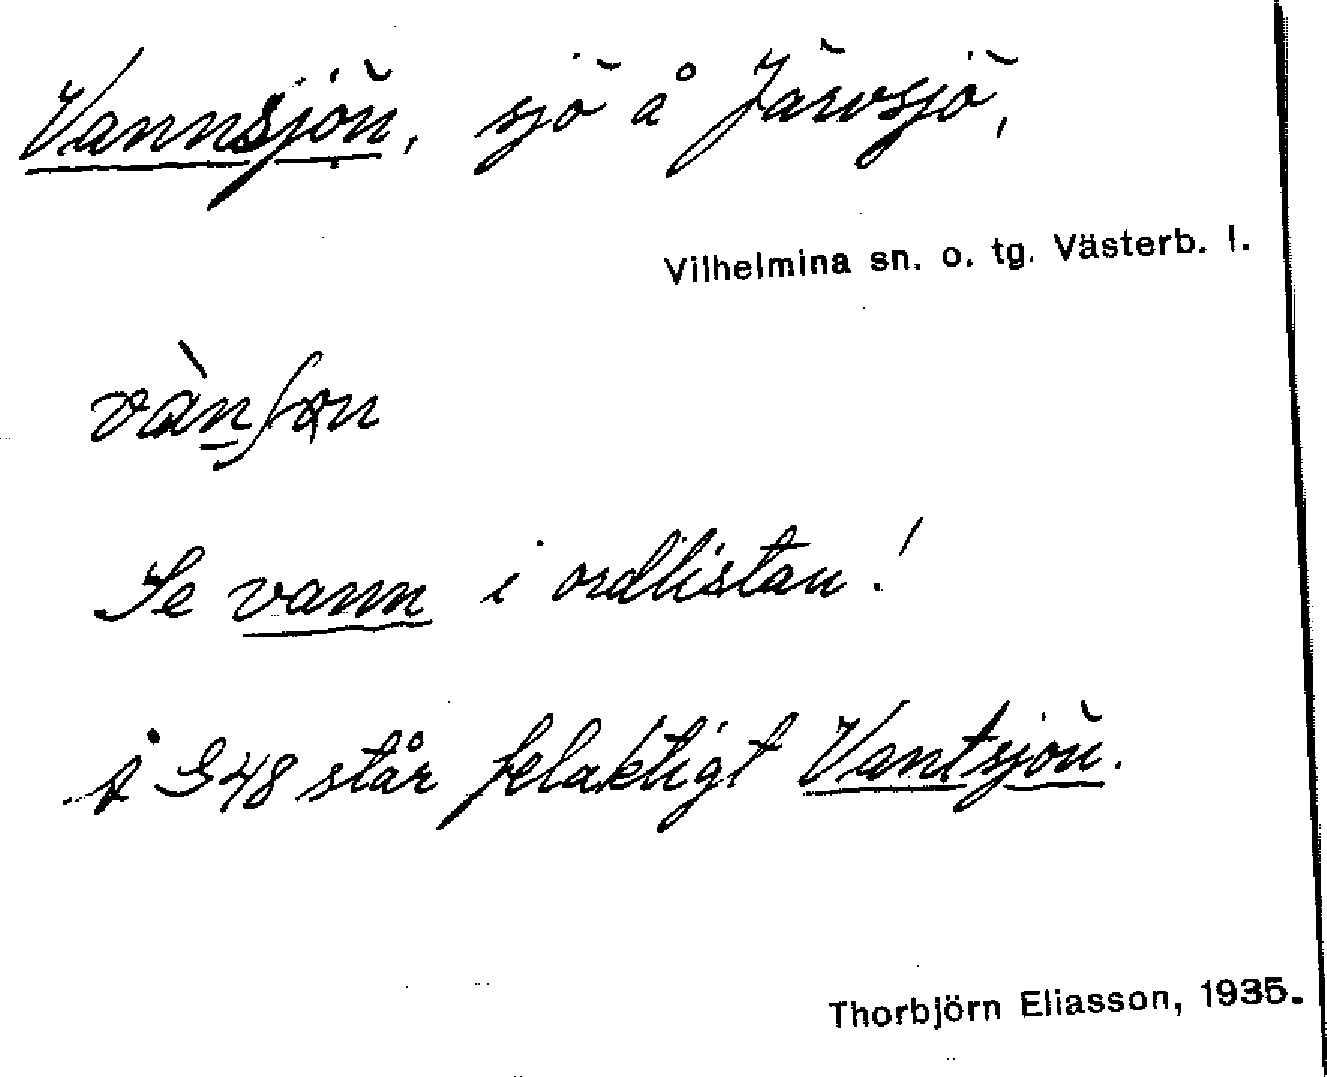 Vannsjön, sjö å Järvsjö,
Vilhelmina sn. o. tg. Västerb. l.
Se vann i ordlistan!
I G48 står felaktigt Vantsjön.
Thorbjörn Eliasson, 1935.